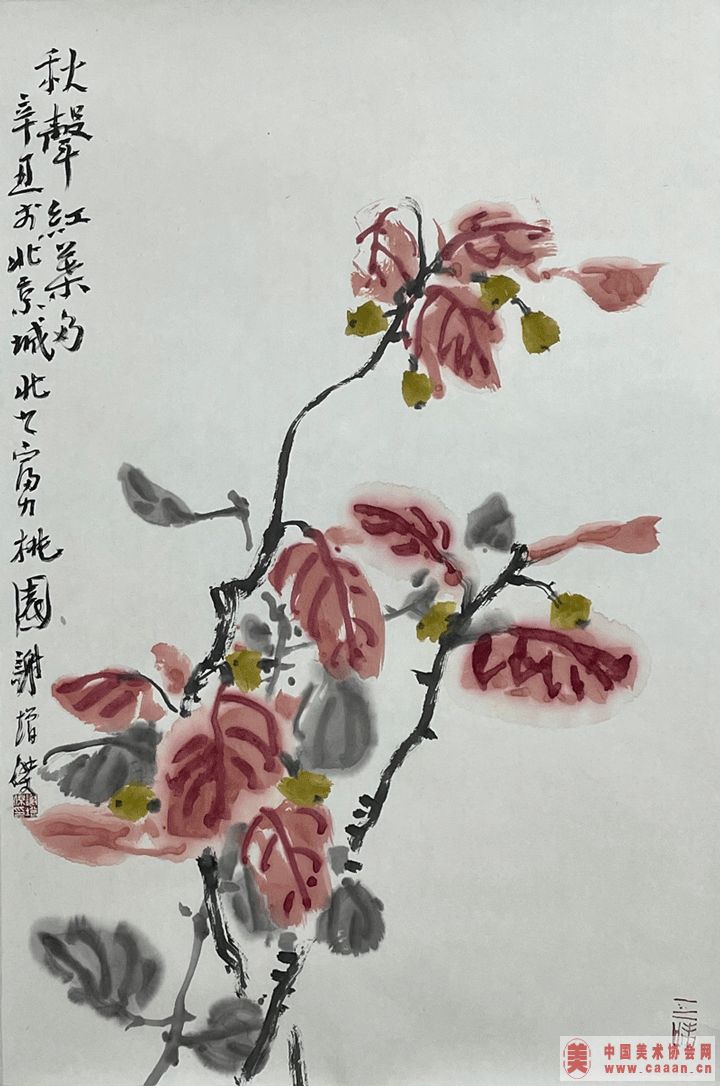 秋聲紅葉多
辛丑於北京城北之富力桃園謝增傑
美
中国美术协会网
www.caaan.cn